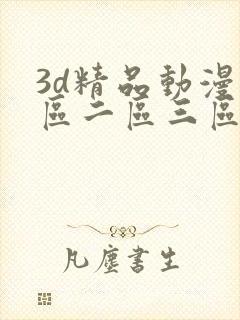 3d精品動漫
區二區三區
凡塵書生